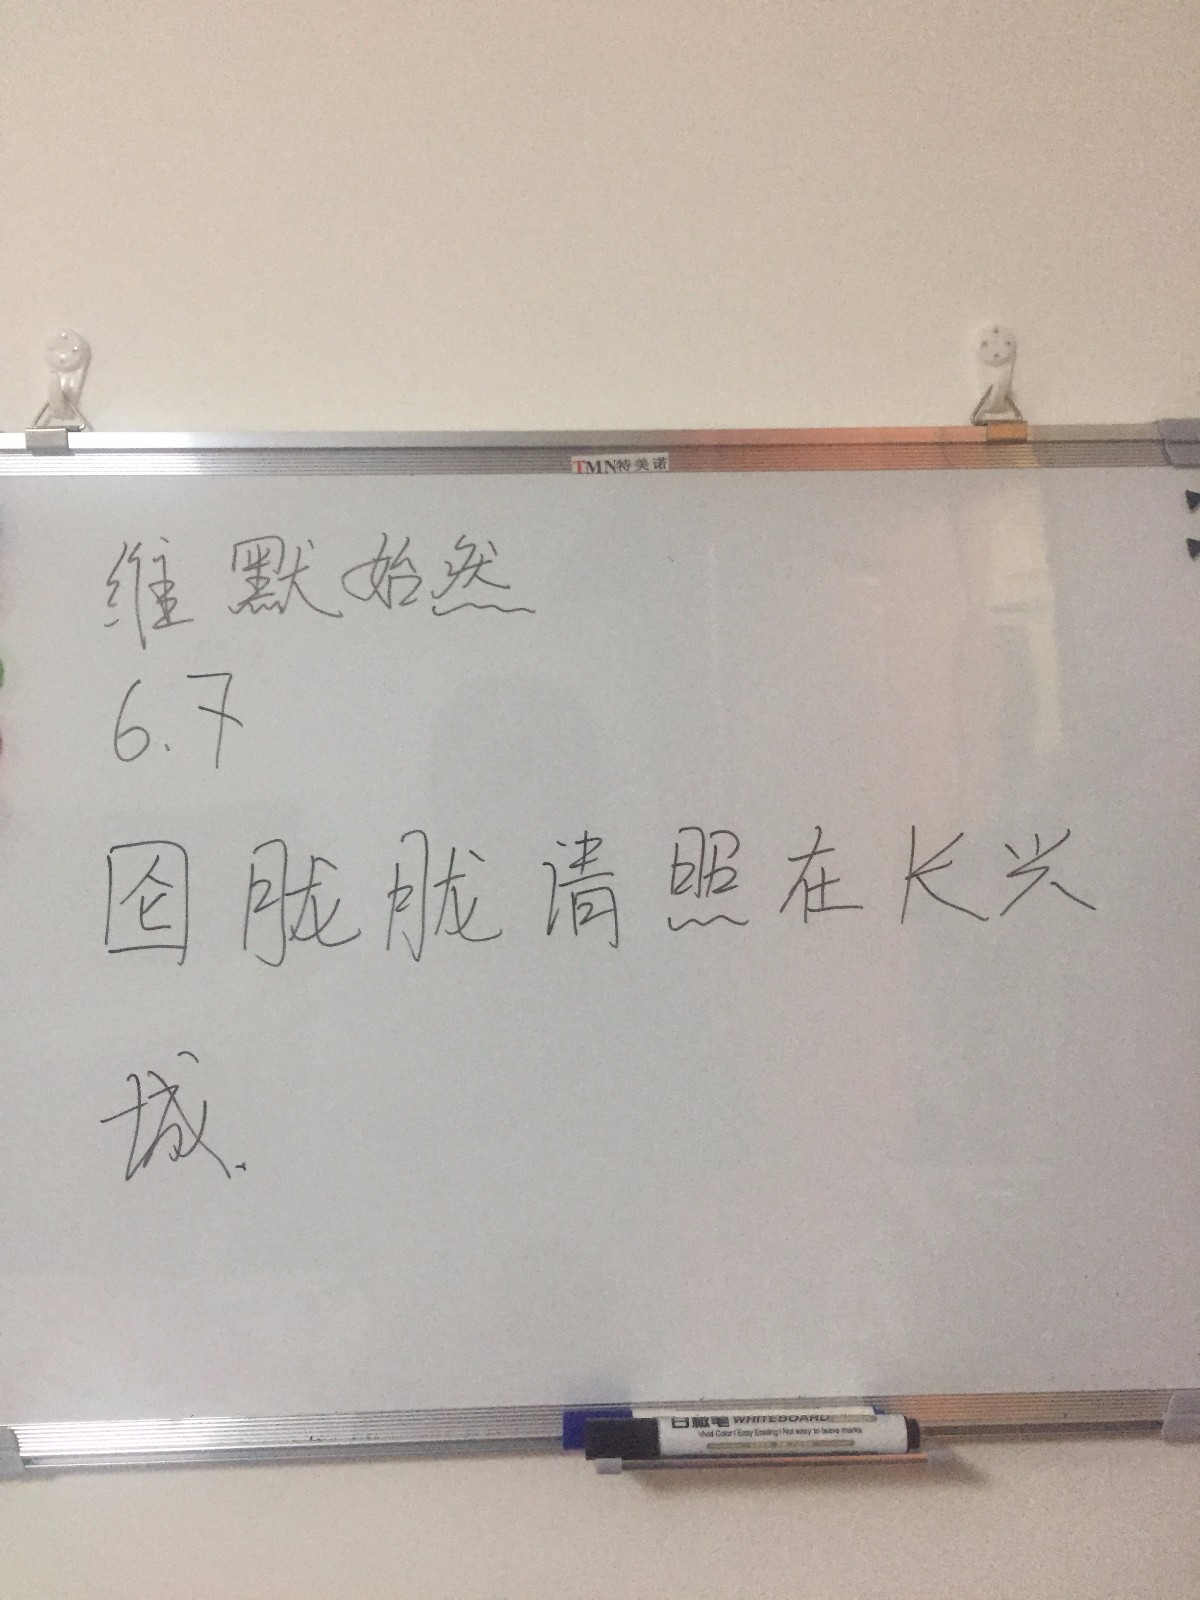 TMN特美诺
维默始然
6.7
囵胧胧请照在长兴
城.
白板笔 WHITEBOARD
Vivid Color | Easy Erasing | Not easy to leave marks